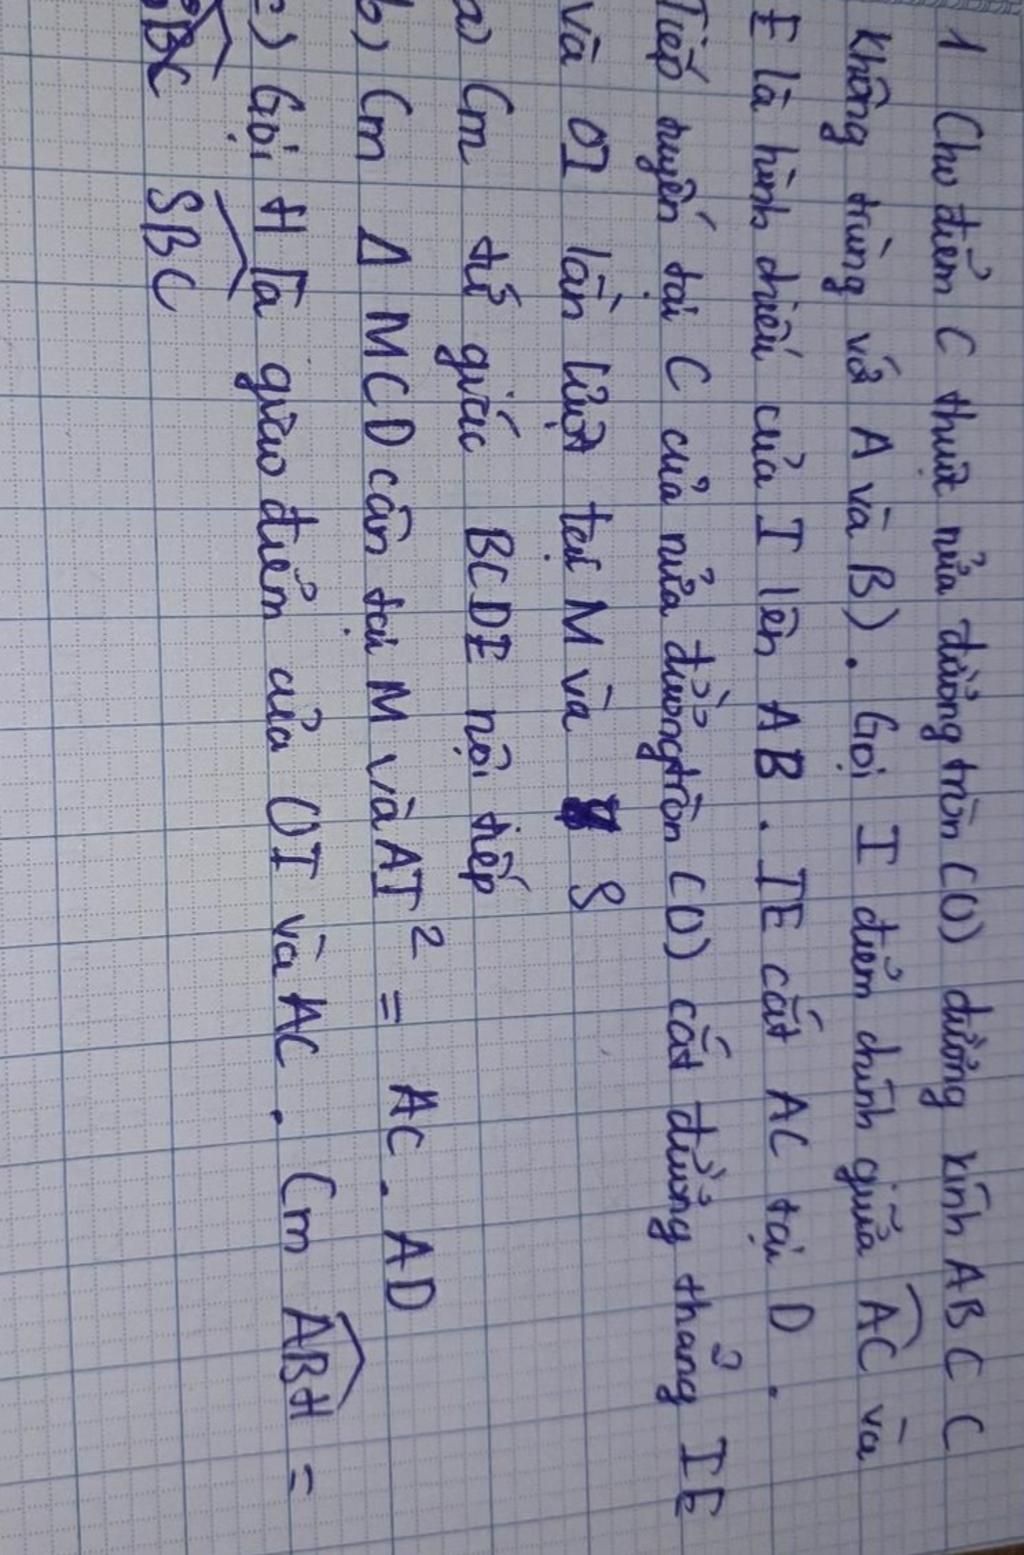 1 Cho điểm C thuộc nửa đường tròn (O) đường kính AB C C
không trùng với A và B). Gọi I điểm chính giữa AC và
E là hình chiếu của I lên AB. IE cắt AC tại D.
Tiếp tuyến tại C của nửa đường tròn (O) cắt đường thẳng IE
và OI lần lượt tại M và S
a) Cm tứ giác BCDE nội tiếp
b) Cm Δ MCD cân tại M và AI² = AC. AD
c) Gọi H là giao điểm của OI và AC. Cm ABH =
SBC